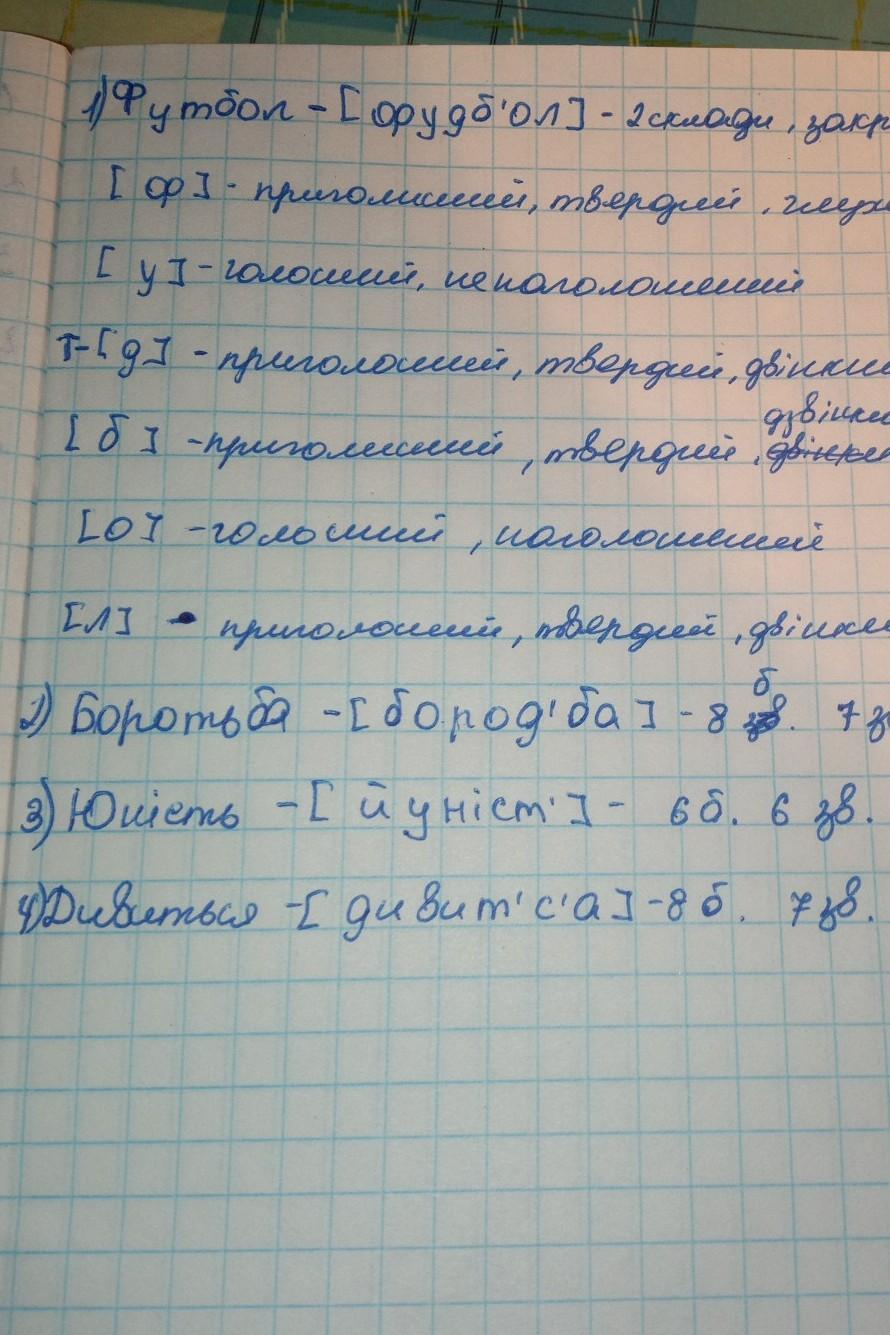 1) Футбол - [фудб'ол] - 2 склади, закр
[ф] - приголосний, твердий, глух
[у] - голосний, ненаголошений
т-[д] - приголосний, твердий, двінки
дзвінки
[б] - приголосний, твердий, двінки
[о] - голосний, наголошений
[л] - приголосний, твердий, двінки
б
2) Боротьба - [бород'ба] - 8 зв. 7 з
3) Юність - [йуніст'] - 6 б. 6 зв.
4) Дивиться - [дивит'с'а] - 8 б. 7 зв.